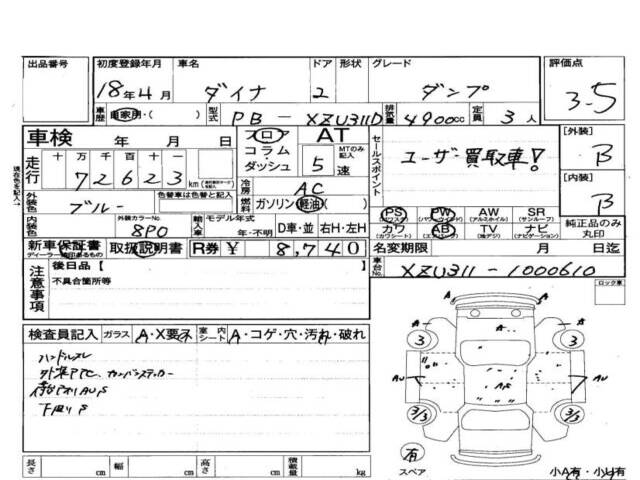 出品番号 初度登録年月 車名 ドア 形状 グレード 評価点
18年4月 ダイナ 2 ダンプ 3.5
車歴 自家用・( ) 型式 PB-XZU311D 排気量 4900cc 定員 3人
車検 年 月 日 フロア AT セールスポイント [外装]
コラム MTのみ記入 ユーザー買取車! B
走行 十 万 千 百 十 一 ダッシュ 5 速
72623 km 冷房 AC [内装]
外装色 ブルー 色替車は色替と記入 燃料 ガソリン・軽油( ) B
PS PW AW SR
(パワステ) (パワーウィンドウ) (アルミホイル) (サンルーフ)
内装色 外装カラーNo. 8P0 輸入車 モデル年式 年・不明 D車・並 右H・左H カワ AB TV ナビ 純正品のみ丸印
(カワシート) (エアバッグ) (地デジ) (ナビゲーション)
新車保証書 取扱説明書 R券 ¥ 8,740 名変期限 月 日迄
ディーラー補印あるもの
注意事項 後日品【 】 車台No. XZU311-1000610
不具合箇所等 ロック車
検査員記入 ガラス A・X要否 室内シート A・コゲ・穴・汚れ・破れ
ハンドルスレ
下廻りS
A A
3 3
AU AU
3/3 3/3
有
スペア 小A有・小U有
長さ cm 幅 cm 高さ cm 積載量 kg